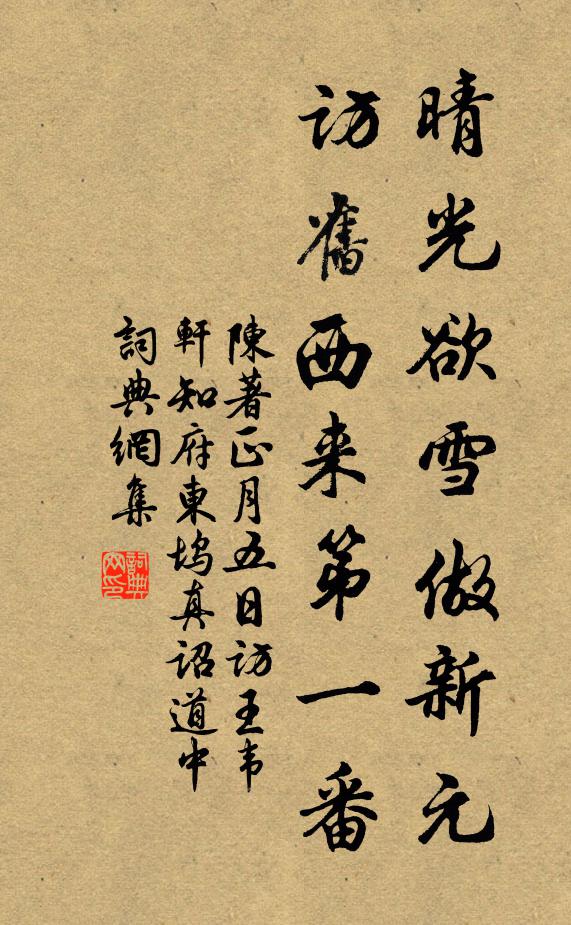 晴光欲雪做新元
訪舊西来第一番
陳著正月五日訪王韦
軒知府東塢真詔道中
詞典網集
詞典
网印